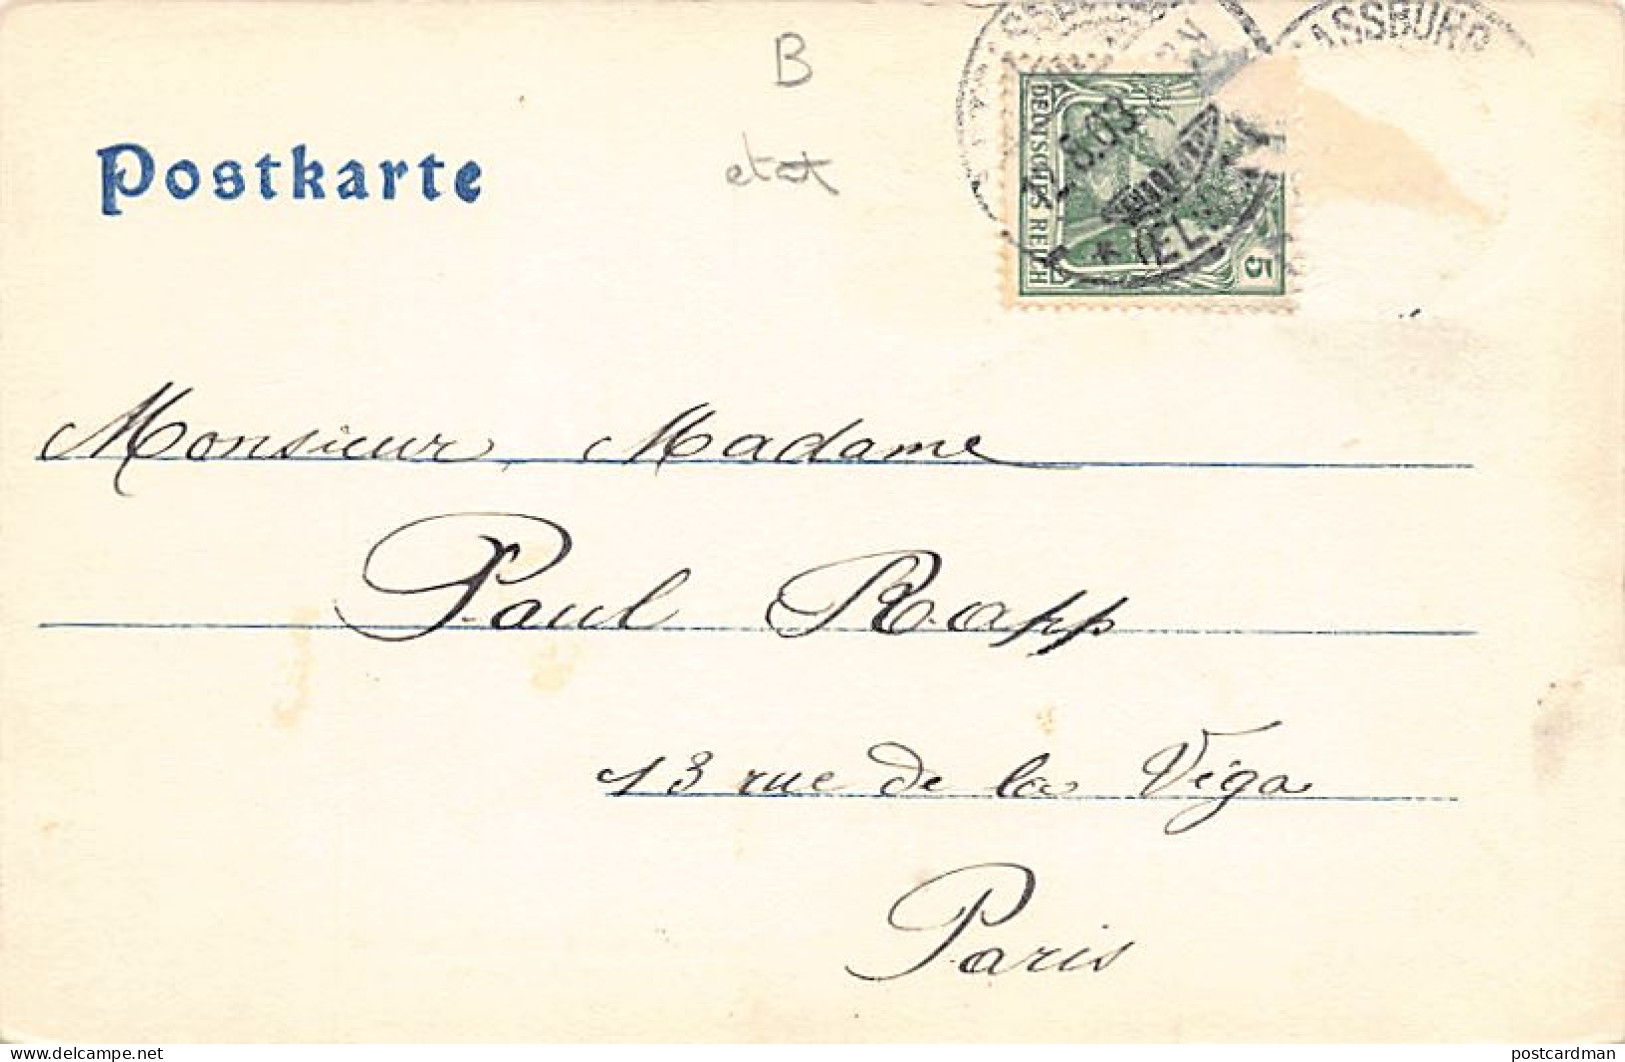 B
etat
Postkarte
ASSBURG
DEUTSCHES REICH
5
5.03
* (ELS
Monsieur, Madame
Paul Rapp
13 rue de la Véga
Paris
www.delcampe.net
postcardman